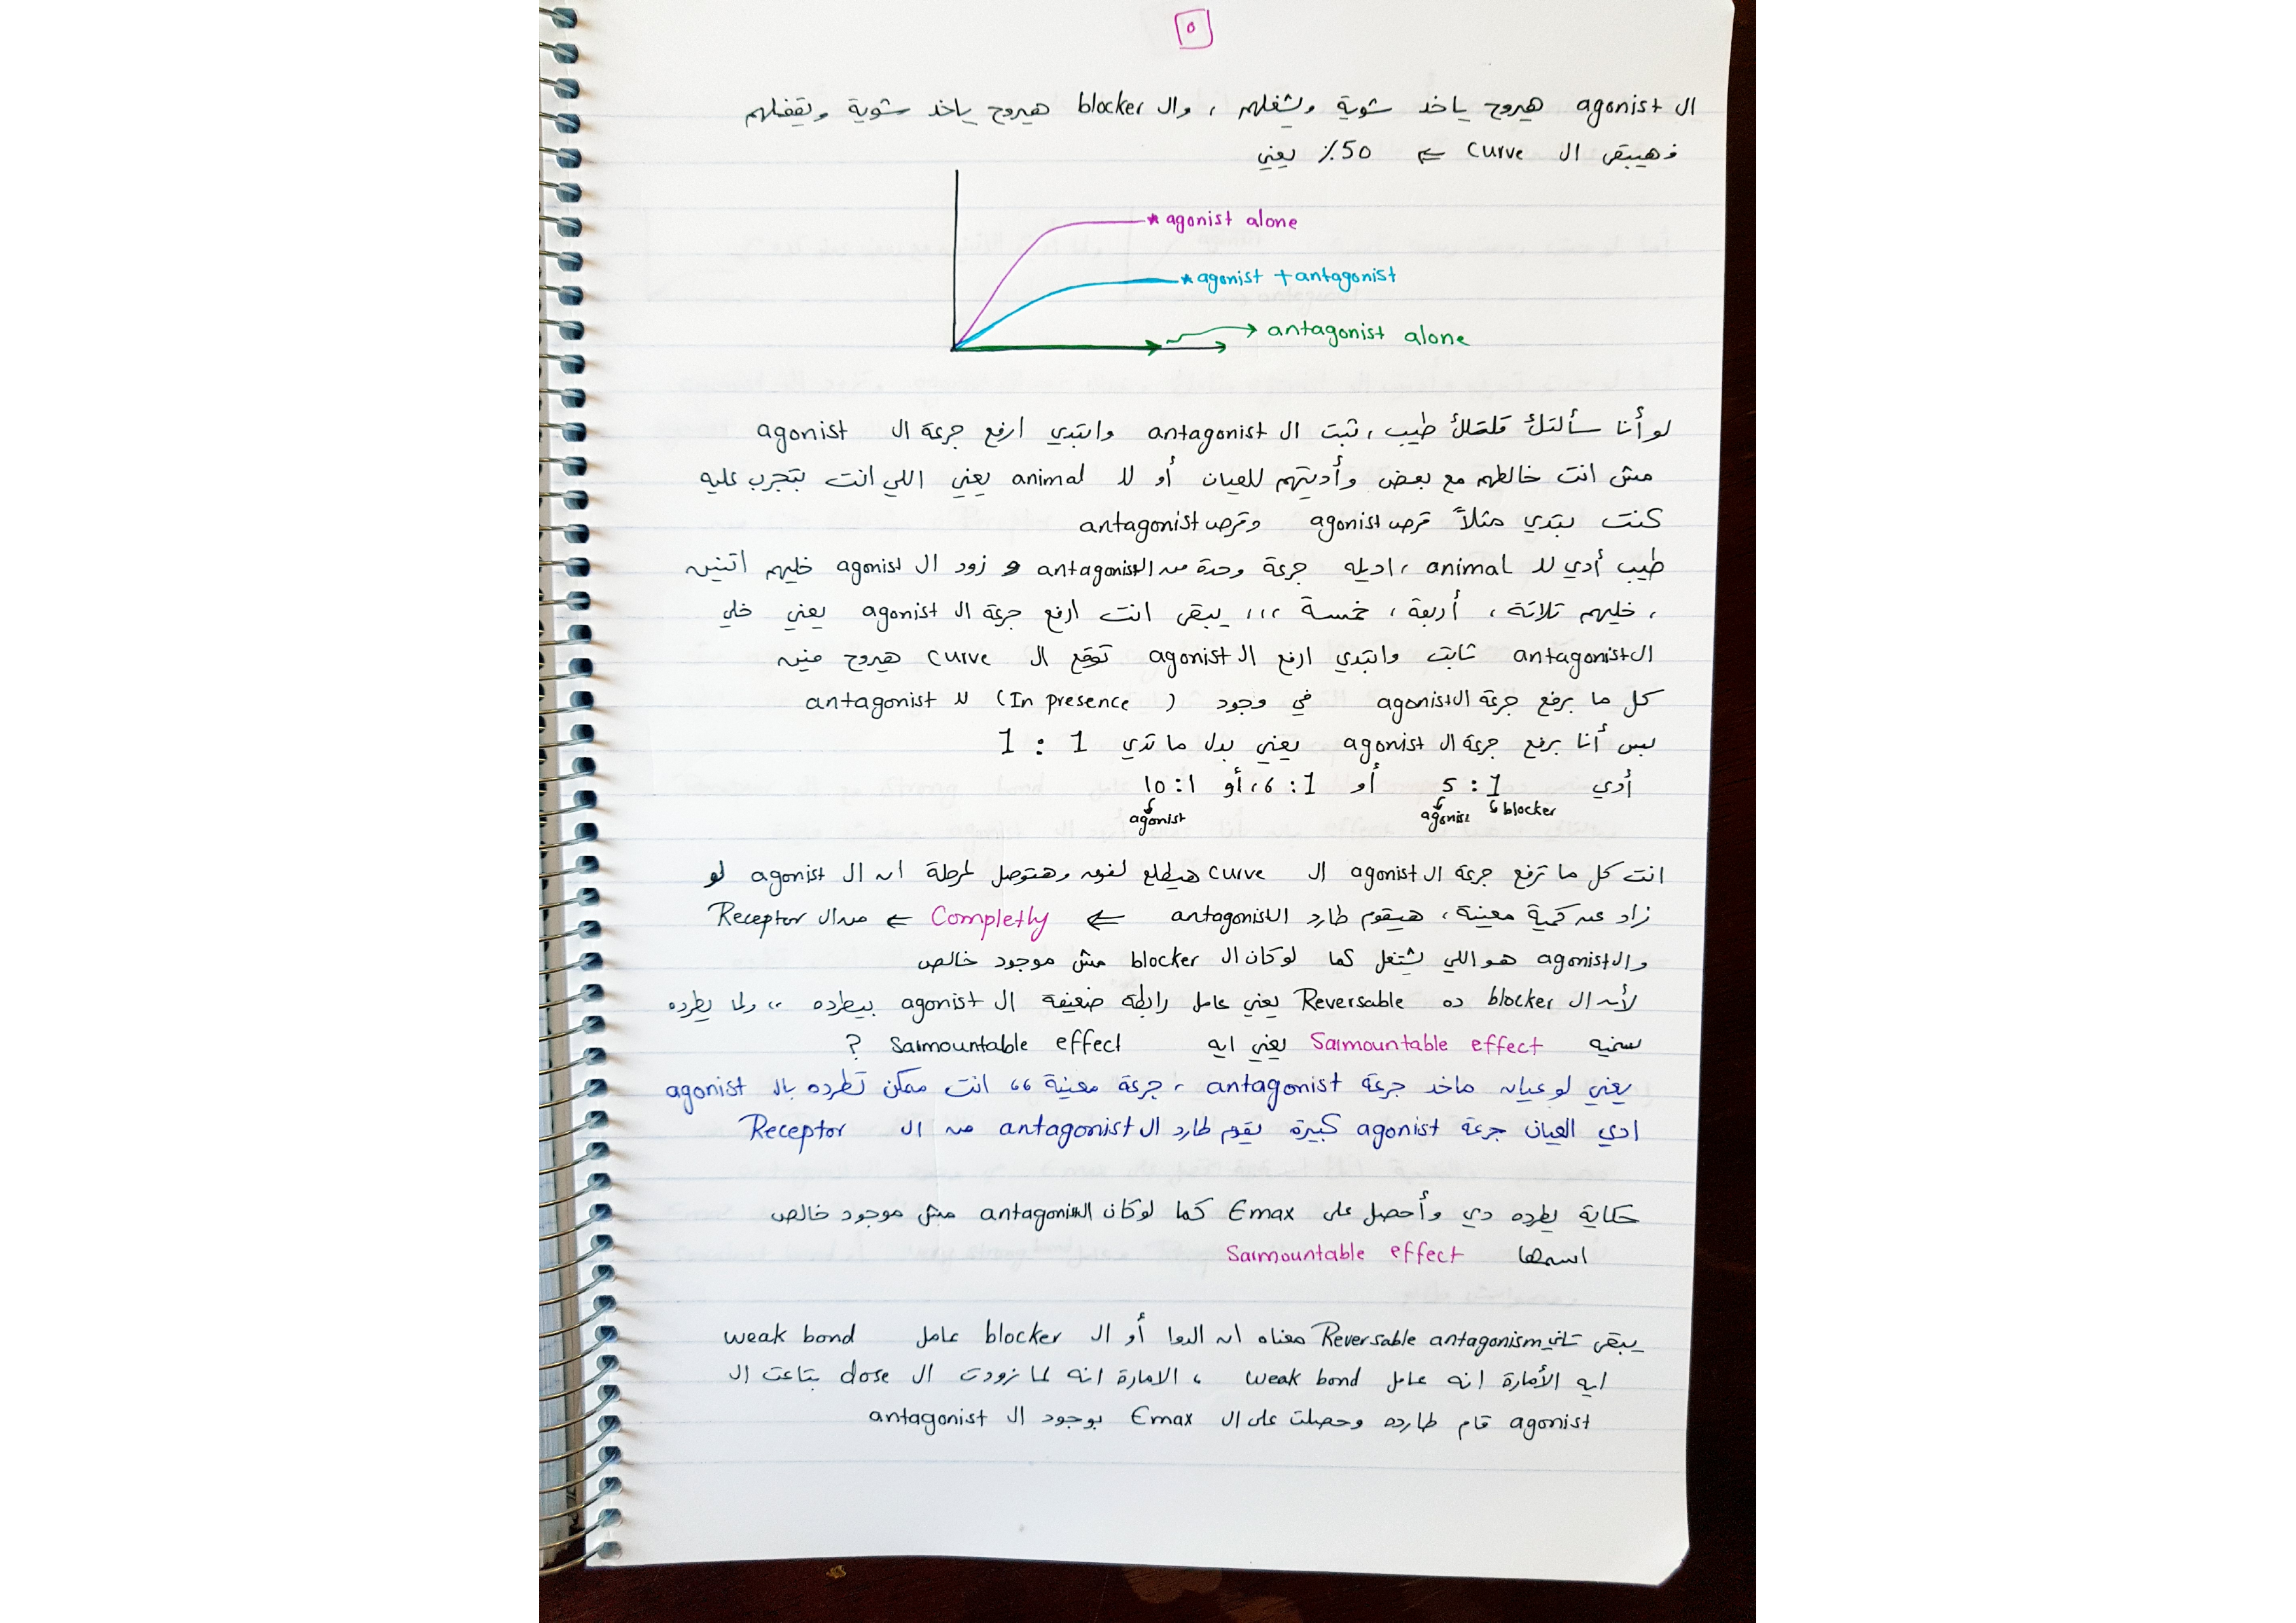 ٥
ال agonist هيروح ياخد شوية ويشغلهم ، وال blocker هيروح ياخد شوية ويقفلهم
فهيبقى ال Curve ⇐ 50٪ يعني
* agonist alone
* agonist + antagonist
antagonist alone
لو أنا سألتك قلتلك طيب ، ثبت ال antagonist وابتدي ارفع جرعة ال agonist
مش انت خالطهم مع بعض وأديتهم للعيان أو لل animal يعني اللي انت بتجرب عليه
كنت بتدي مثلاً قرص agonist وقرص antagonist
طيب أدي لل animal ، اديله جرعة وحدة من ال antagonist و زود ال agonist خليهم اتنين
، خليهم تلاتة ، أربعة ، خمسة ،،، يبقى انت ارفع جرعة ال agonist يعني خلي
ال antagonist ثابت وابتدي ارفع ال agonist توقع ال curve هيروح فين
كل ما برفع جرعة ال agonist في وجود ( In presence ) لل antagonist
بس أنا برفع جرعة ال agonist يعني بدل ما تدي 1 : 1
أدي 5 : 1 أو 6 : 1 ، أو 10 : 1
agonist blocker agonist
انت كل ما ترفع جرعة ال agonist ال curve هيطلع لفوق وهتوصل لمرحلة ان ال agonist لو
زاد عن كمية معينة ، هيقوم طارد ال antagonist ⇐ Completly ⇐ من ال Receptor
وال agonist هو اللي يشتغل كما لو كان ال blocker مش موجود خالص
لأن ال blocker ده Reversable يعني عامل رابطة ضعيفة ال agonist بيطرده ،، ولما يطرده
بسميه Sarmountable effect يعني ايه Sarmountable effect ?
يعني لو عيان ماخد جرعة antagonist ، جرعة معينة ،، انت ممكن تطرده بال agonist
ادي العيان جرعة agonist كبيرة يقوم طارد ال antagonist من ال Receptor
حكاية يطرده دي وأحصل على Emax كما لو كان ال antagonist مش موجود خالص
اسمها Sarmountable effect
يبقى تاني Reversable antagonism معناه ان الدوا أو ال blocker عامل weak bond
ايه الأمارة انه عامل weak bond ، الامارة انه لما زودت ال dose بتاعت ال
agonist قام طارده وحصلت على ال Emax بوجود ال antagonist